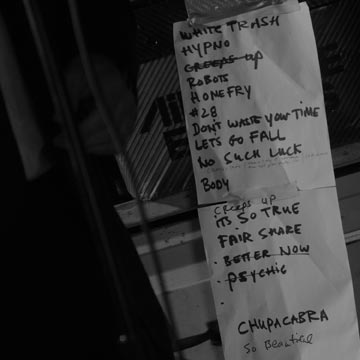 WHITE TRASH
HYPNO
CREEPS UP
ROBOTS
HOMEFRY
#28
DON'T WASTE YOUR TIME
LETS GO FALL
NO SUCH LUCK
BODY
CREEPS UP
ITS SO TRUE
FAIR SHARE
· BETTER NOW
· PSYCHIC
·
CHUPACABRA
SO BEAUTIFUL